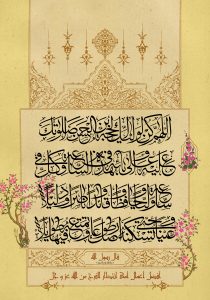 اللهم كن لوليك الحجة بن الحسن صلواتك
عليه وعلى آبائه في هذه الساعة وفي كل
ساعة وليا وحافظا وقائدا وناصرا ودليلا و
عينا حتى تسكنه أرضك طوعا وتمتعه فيها طويلا
قال رسول الله
افضل اعمال امتي انتظار الفرج من الله عز و جل